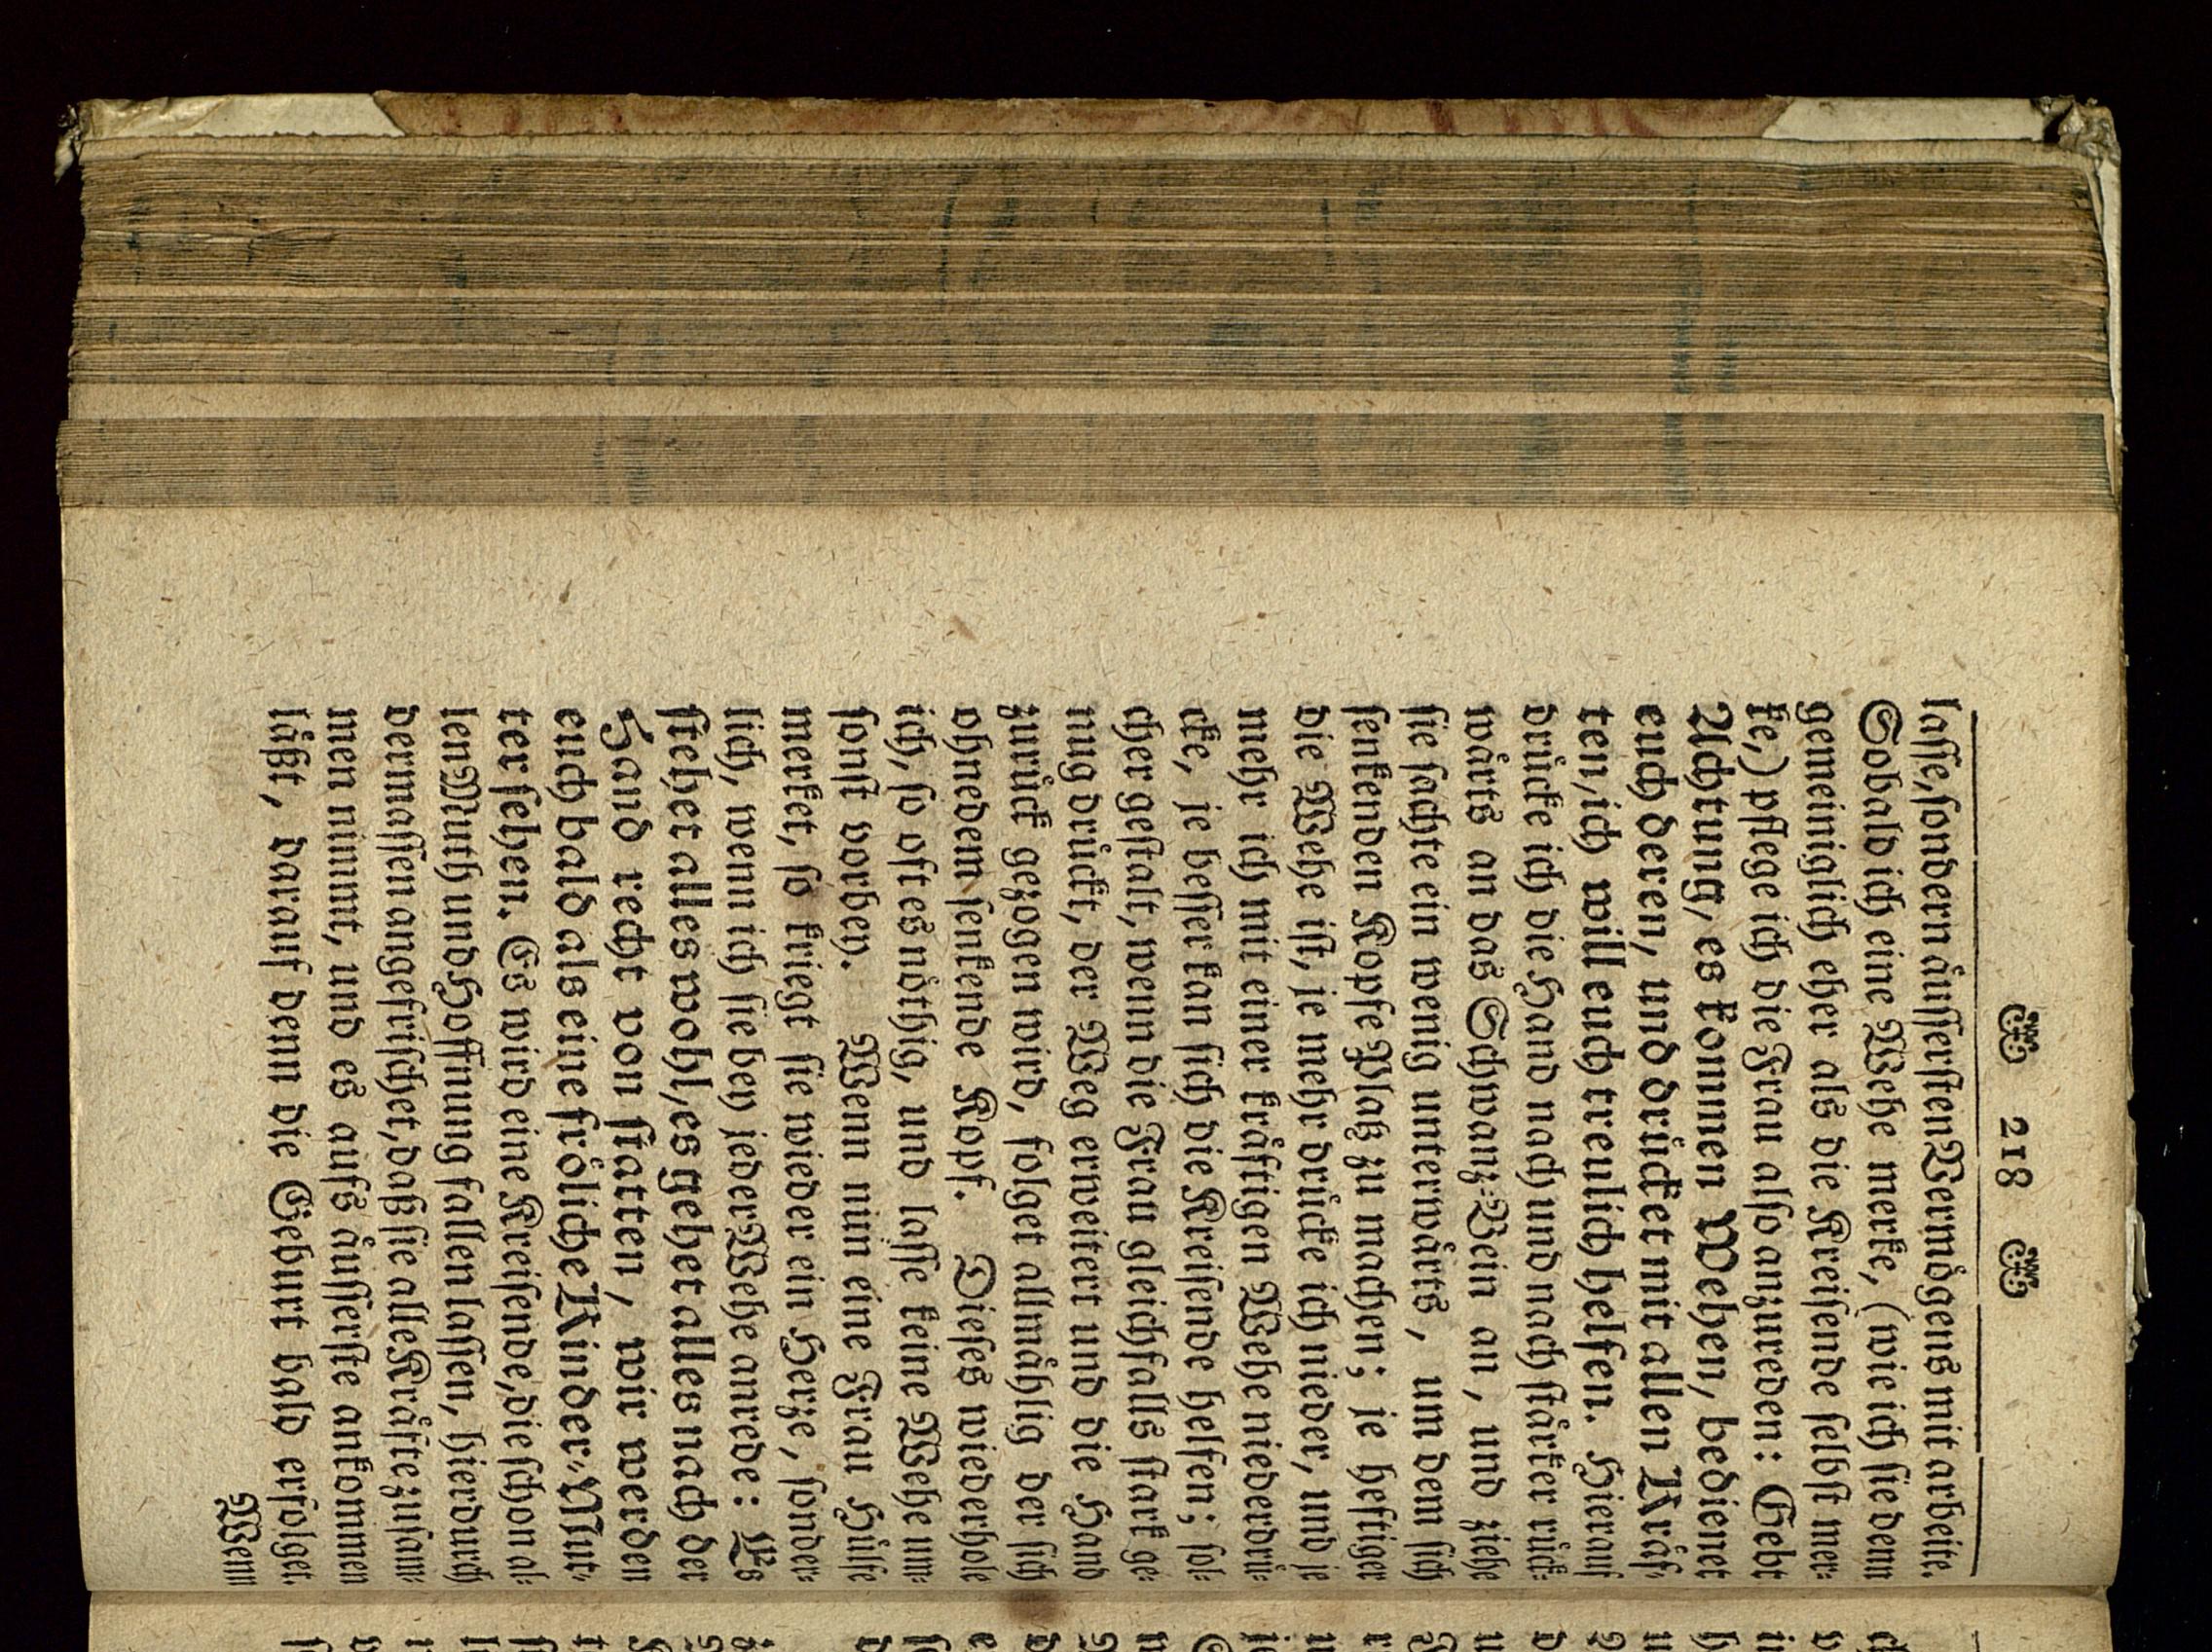 218
lasse, sondern äussersten Vermögens mit arbeite.
Sobald ich eine Wehe mercke, (wie ich sie denn
gemeiniglich eher als die Kreisende selbst mer-
ke,) pflege ich die Frau also anzureden: Gebt
Achtung, es kommen Wehen, bedienet
euch deren, und drücket mit allen Kräf-
ten, ich will euch treulich helfen. Hierauf
drücke ich die Hand nach und nach stärker rück-
wärts an das Schwanz-Bein an, und ziehe
sie sachte ein wenig unterwärts, um dem sich
senkenden Kopfe Platz zu machen; je heftiger
die Wehe ist, je mehr drücke ich nieder, und je
mehr ich mit einer kräftigen Wehe niederdrü-
cke, je besser kan sich die Kreisende helfen; sol-
cher gestalt, wenn die Frau gleichfalls stark ge-
nug drückt, der Weg erweitert und die Hand
zurück gezogen wird, folget allmählig der sich
ohnedem senkende Kopf. Dieses wiederhole
ich, so oft es nöthig, und lasse keine Wehe um-
sonst vorbey. Wenn nun eine Frau Hülfe
merket, so kriegt sie wieder ein Herze, sonder-
lich, wenn ich sie bey jeder Wehe anrede: Es
stehet alles wohl, es gehet alles nach der
Hand recht von statten, wir werden
euch bald als eine fröliche Kinder-Mut-
ter sehen. Es wird eine Kreisende, die schon al-
len Muth und Hoffnung fallen lassen, hierdurch
dermassen angefrischet, daß sie alle Kräfte zusam-
men nimmt, und es aufs äusserste ankommen
läßt, darauf denn die Geburt bald erfolget.
Wenn